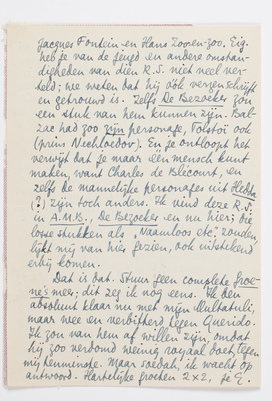 Jacques Fontein en Hans Zooren-zoo. Eig.
heb je van de jeugd en andere omstan-
digheden van dien R.S. niet veel ver-
teld; we weten dat hij óók verzenschrijft
en getrouwd is. Zelfs De Bezoeker zou
een stuk van hem kunnen zijn. Bal-
zac had zoo zijn personage, Tolstoï ook
(prins Nechloedov). En je ontloopt het
verwijt dat je maar één mensch kunt
maken, want Charles de Blécourt, en
zelfs de mannelijke personages uit Hedda
(?) zijn toch anders. Ik vind deze R.S.
in A.M.B., De Bezoeker en nu hier; die
losse stukken als "Naamloos etc." zouden,
lijkt mij van hier gezien, ook uitstekend
erbij komen.
Dat is dat. Stuur geen complete groe-
nes meer; dit zeg ik nog eens. Ik ben
absoluut klaar nu met mijn Multatuli,
maar wee en verbitterd tegen Querido.
Ik zou van hem af willen zijn, omdat
hij zoo verdomd weinig royaal doet tegen
mij. Maar soedah, ik wacht op
antwoord. Hartelijke groeten 2 x 2, je E.